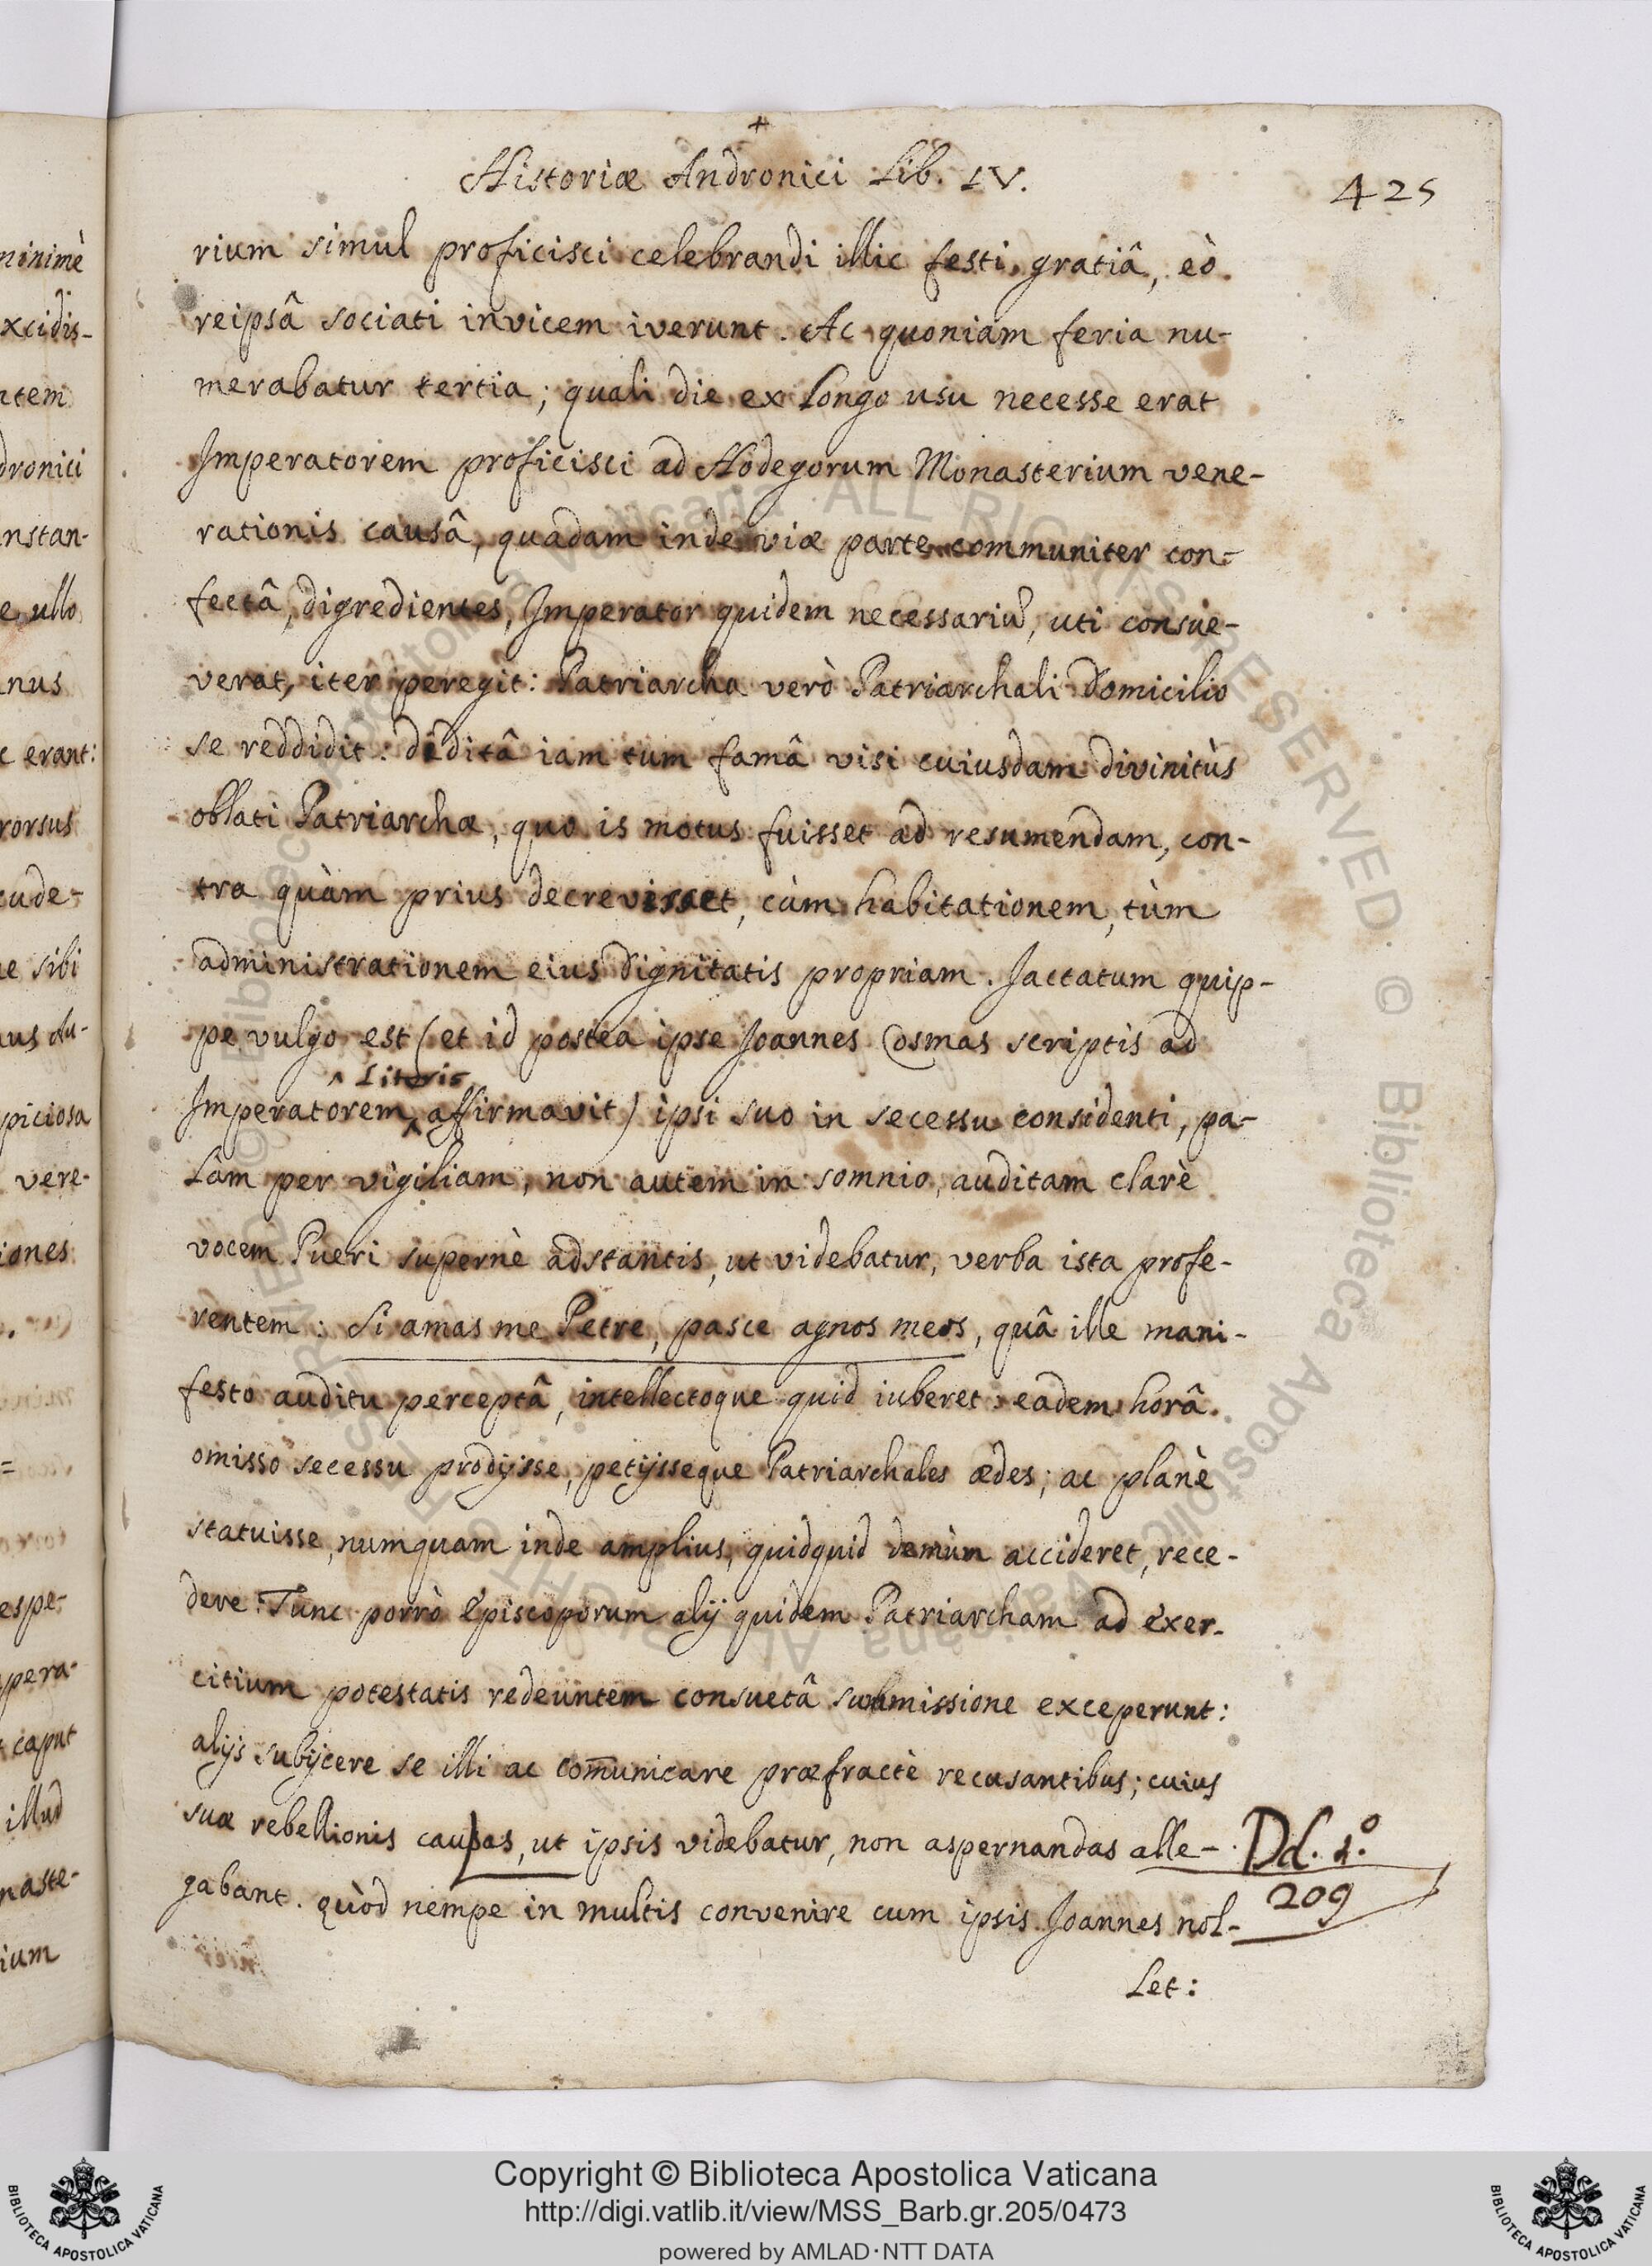 +
Historiæ Andronici Lib. IV.
425
rium simul proficisci celebrandi illic festi gratiâ, eò
reipsâ sociati invicem iverunt. Ac quoniam feria nu-
merabatur tertia; quali die ex longo usu necesse erat
Imperatorem proficisci ad Hodegorum Monasterium vene-
rationis causâ, quadam inde viæ parte communiter con-
fectâ, digredientes, Imperator quidem necessariũ, uti consue-
verat, iter peregit: Patriarcha verò Patriarchali Domicilio
se reddidit: diditâ iam tum famâ visi cuiusdam divinitùs
oblati Patriarchæ, quo is motus fuisset ad resumendam, con-
tra quàm prius decrevisset, cùm habitationem, tùm
administrationem eius Dignitatis propriam. Jactatum quip-
pe vulgo est (et id postea ipse Joannes Cosmas scriptis ad
^ Literis
Imperatorem ^ affirmavit) ipsi suo in secessu considenti, pa-
làm per vigiliam, non autem in somnio, auditam clarè
vocem Pueri supernè adstantis, ut videbatur, verba ista profe-
rentem: Si amas me Petre, pasce agnos meos, quâ ille mani-
festo auditu perceptâ, intellectoque quid iuberet: eadem horâ
omisso secessu prodijsse, petijsseque Patriarchales ædes; ac planè
statuisse, numquam inde amplius, quidquid demùm accideret, rece-
dere. Tunc porrò Episcoporum alij quidem Patriarcham ad exer-
citium potestatis redeuntem consuetâ submissione exceperunt:
alijs subijcere se illi ac com̄unicare præfractè recusantibus; cuius
suæ rebellionis causas, ut ipsis videbatur, non aspernandas alle-
Dd. 1.º
209
gabant. quòd nempe in multis convenire cum ipsis Joannes nol-
let:
minimè
xcidis-
ntem
dronici
nstan-
e ullo
nus
c erant:
rorsus
cude-
ue sibi
piciosa
vere-
iones
espe-
pera-
caput
illud
naste-
ium
© Biblioteca Apostolica Vaticana ALL RIGHTS RESERVED
Copyright © Biblioteca Apostolica Vaticana
http://digi.vatlib.it/view/MSS_Barb.gr.205/0473
powered by AMLAD·NTT DATA
BIBLIOTECA APOSTOLICA VATICANA
BIBLIOTECA APOSTOLICA VATICANA